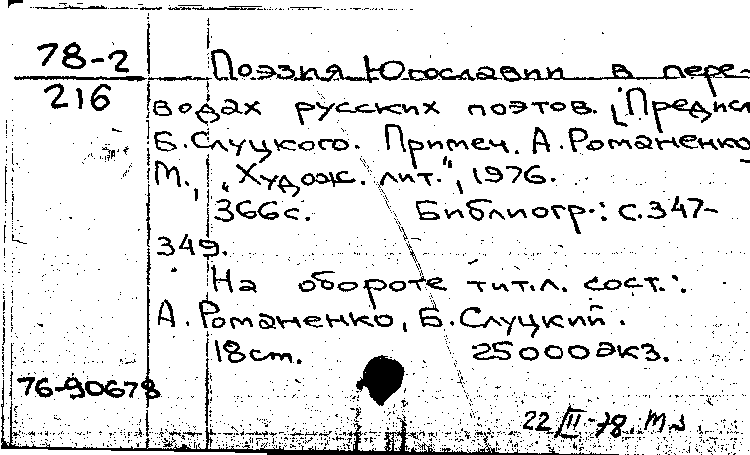 78-2
216
Поэзия Югославии в пере-
водах русских поэтов. [Предисл.
Б. Слуцкого. Примеч. А. Романенко]
М., "Худож. лит.", 1976.
366 с. Библиогр.: с. 347-
349.
На обороте тит. л. сост.:
А. Романенко, Б. Слуцкий.
18 см. 25000 экз.
76-90678
22/II-78.